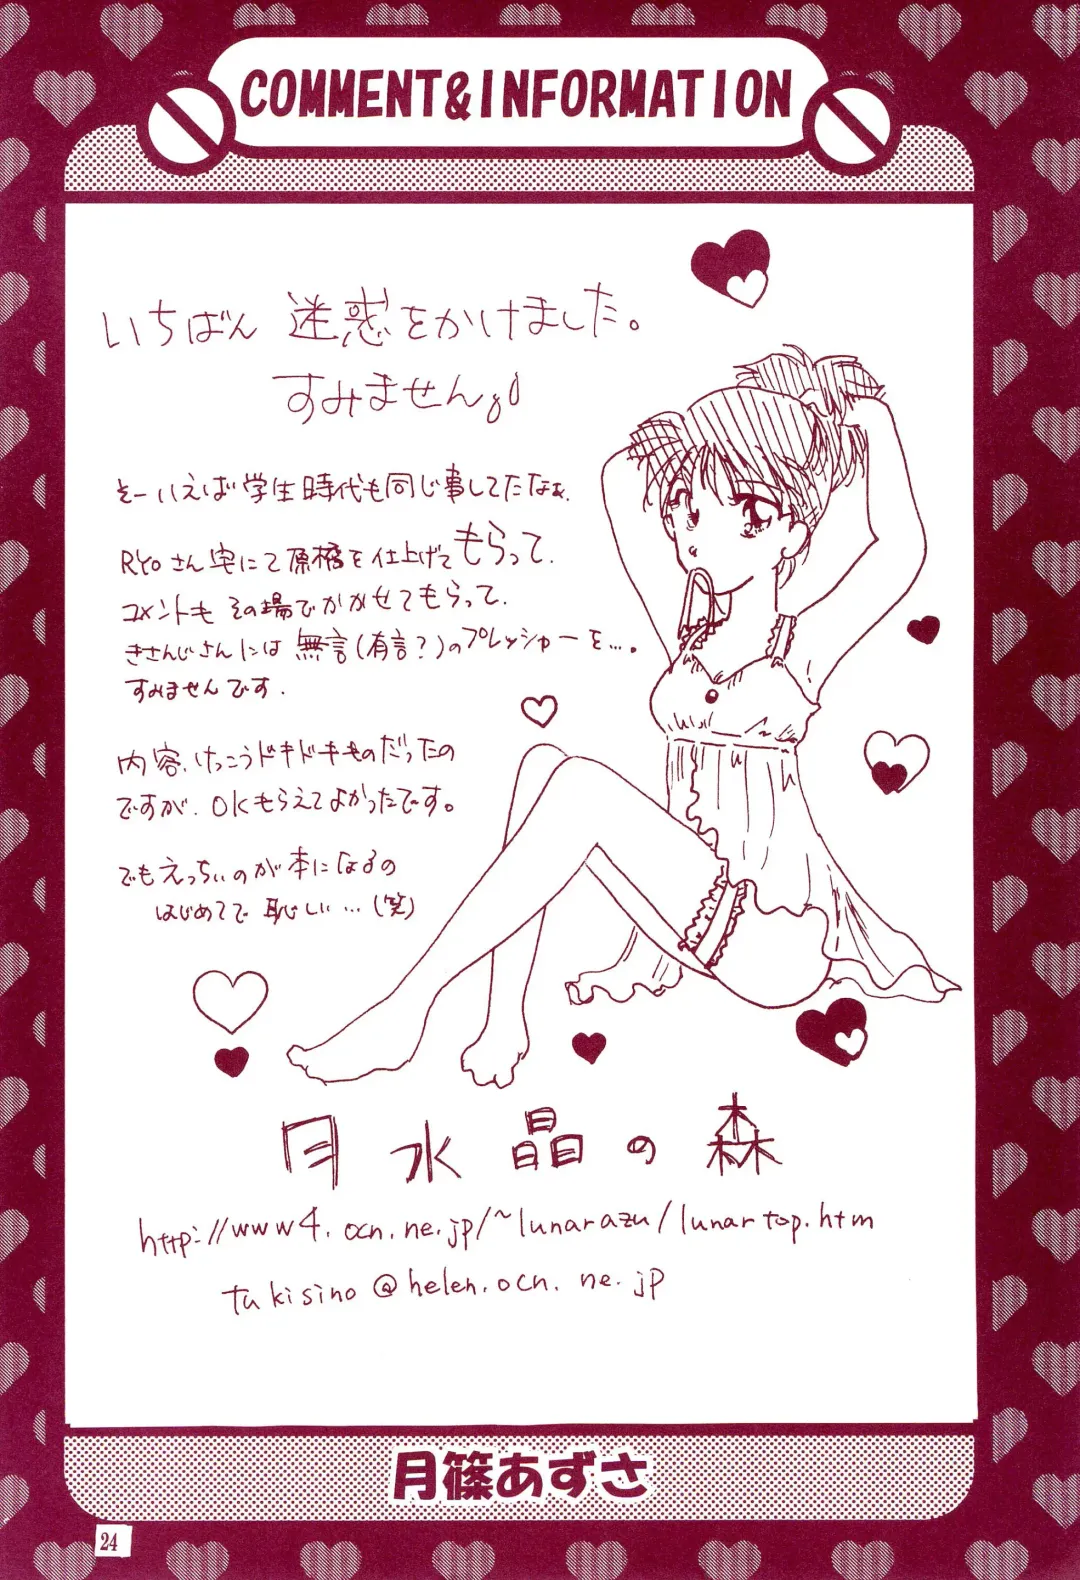 COMMENT&INFORMATION
いちばん 迷惑をかけました。
すみません。
そーいえば学生時代も同じ事してたなぁ。
RYOさん宅にて原稿を仕上げてもらって、
コメントも その場でかかせてもらって、
きさんじさんには 無言(有言?)のプレッシャーを…。
すみませんです。
内容、けっこうドキドキものだったの
ですが、OKもらえてよかったです。
でもえっちぃのが本になるの
はじめてで 恥しい…(笑)
月水晶の森
http://www4.ocn.ne.jp/~lunarazu/lunartop.htm
takisino@helen.ocn.ne.jp
月篠あずさ
24